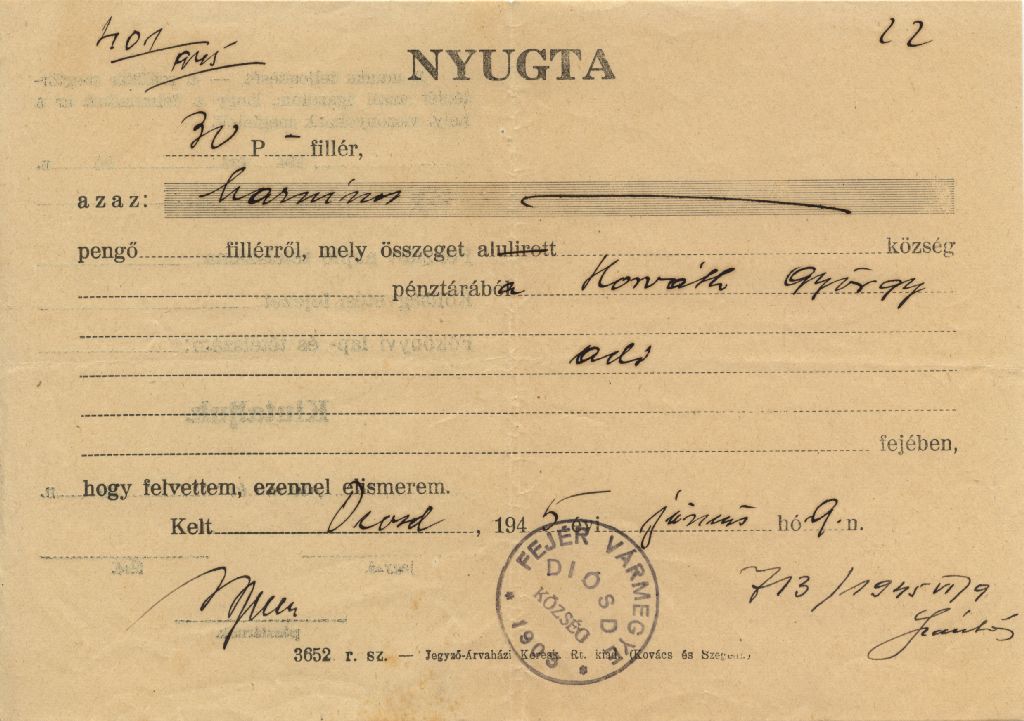 401/945
22
NYUGTA
30 P – fillér,
azaz: harminc
pengő fillérről, mely összeget alulirott község
pénztárából Horváth György
adó
fejében,
hogy felvettem, ezennel elismerem.
Kelt Diosd, 1945 évi június hó 9.n.
FEJÉR VÁRMEGYE
DIÓSD
KÖZSÉG
* 1905 *
713/1945 VI/9
Szántó
3652 r. sz. — Jegyző-Árvaházi Keresk. Rt. kiad. (Kovács és Szegedi.)